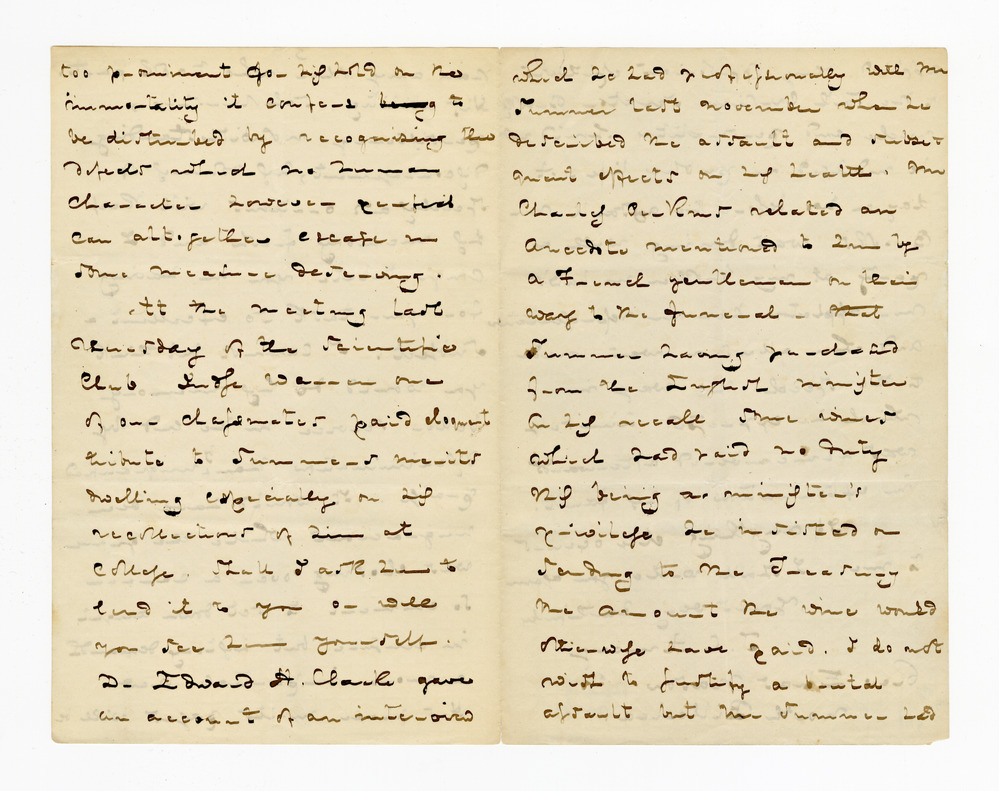 too prominent for his hold on the
immortality it confers being to
be disturbed by recognizing the
defects which no human
Character however perfect
can altogether escape in
some measure deserving.
At the meeting last
Thursday of the Scientific
Club Judge Warren one
of our classmates paid eloquent
tribute to Sumner's merits
dwelling especially on his
recollections of him at
College. Shall I ask him to
lend it to you or will
you see him yourself.
Dr Edward H. Clarke gave
an account of an interview
which he had professionally with Mr
Sumner last November when he
described the assault and subse=
quent effects on his health. Mr
Charles Perkins related an
anecdote mentioned to him by
a French gentleman on their
way to the funeral - that
Sumner having purchased
from the English minister
on his recall some wines
which had paid no duty
this being a minister's
privilege he insisted on
sending to the Treasury
the amount the wine would
otherwise have paid. I do not
wish to justify a brutal
assault but Mr Sumner had